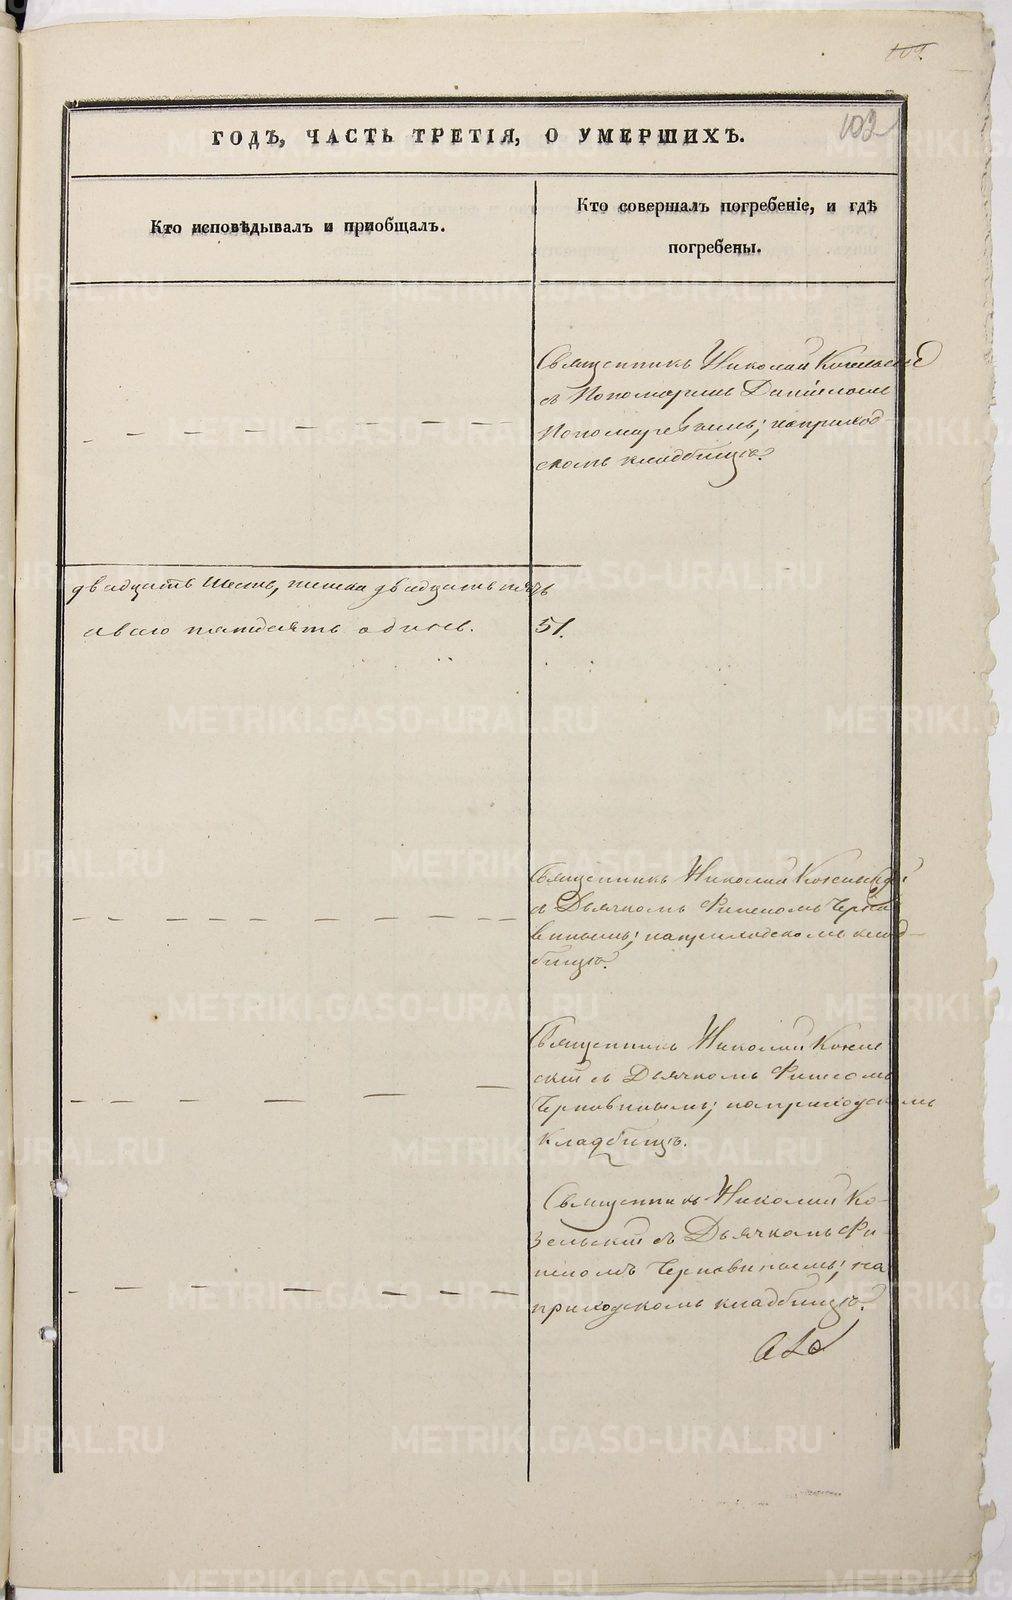 104.
102
ГОДЪ, ЧАСТЬ ТРЕТІЯ, О УМЕРШИХЪ.
Кто исповѣдывалъ и пріобщалъ.
Кто совершалъ погребеніе, и гдѣ
погребены.
Священникъ Николай Козельскій
съ Пономаремъ Даніиломъ
Пономаревымъ; на приход-
скомъ кладбищѣ.
двадцать шесть, женска двадцать пять
а всего пятдесятъ одинъ.
51.
Священникъ Николай Козельскій
съ Дьячкомъ
на приходскомъ клад-
бищѣ.
Священникъ Николай Козель
скій съ Дьячкомъ
на приходскомъ
Кладбищѣ.
Священникъ Николай Ко-
зельскій съ Дьячкомъ
на
приходскомъ кладбищѣ.
METRIKI.GASO-URAL.RU